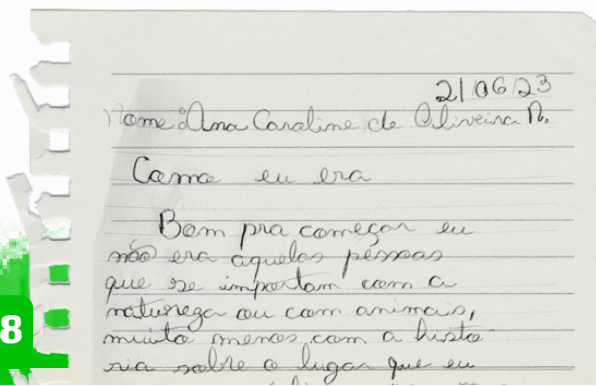 21/06/23
Nome: Ana Caroline de Oliveira R.
Como eu era
Bom pra começar eu
não era aquelas pessoas
que se importam com a
natureza ou com animais,
muito menos com a histo
ria sobre o lugar que eu
8